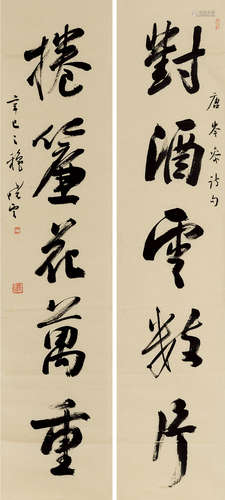 對酒雲數片
唐岑參詩句
捲簾花萬重
辛巳之